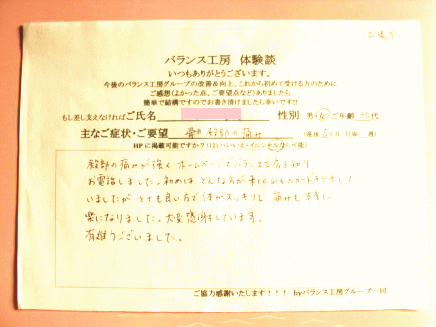 バランス工房 体験談
いつもありがとうございます。
今後のバランス工房グループの改善&向上、これから初めて受ける方のために
ご感想(よかった点、ご要望点など)ありましたら
簡単で結構ですのでお書き頂けましたら幸いです!!
もし差し支えなければご氏名 性別 男・女 ご年齢 代
主なご症状・ご要望 殿部の痛み
HPに掲載可能ですか?(はい・いいえ・イニシャルなら可能)
殿部の痛みが強く ホームページでバランス工房を知り
お電話しました。初めは どんな方が来るかドキドキして
いましたが とても良い方で体がスッキリし 痛みも
楽になりました。大変感謝しています。
有難うございました。
ご協力感謝いたします!!! byバランス工房グループ一同